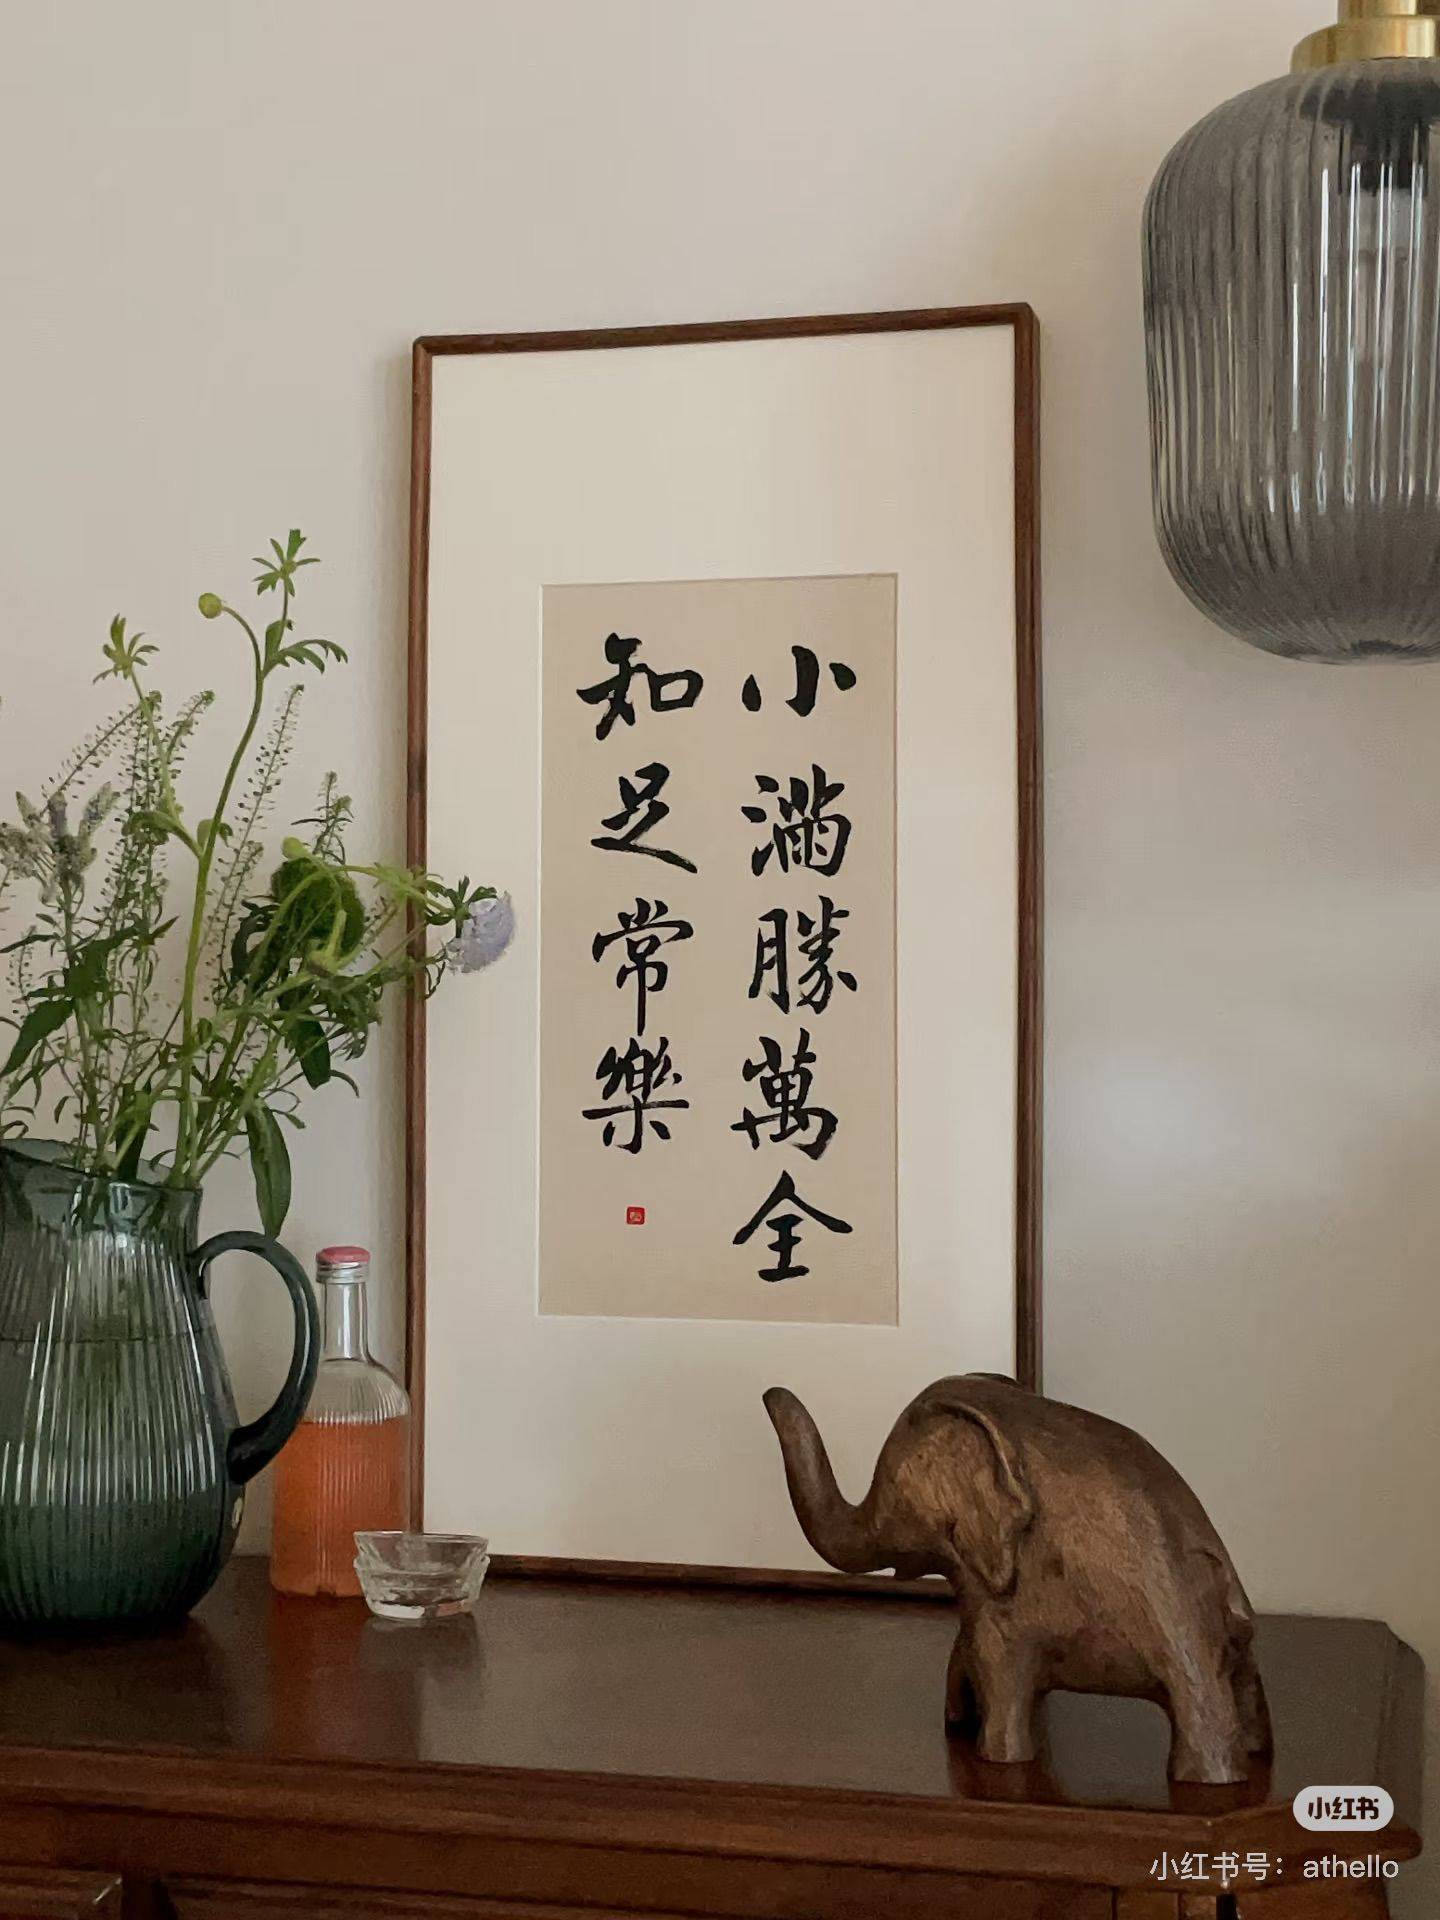 小滿勝萬全
知足常樂
小红书
小红书号：athello